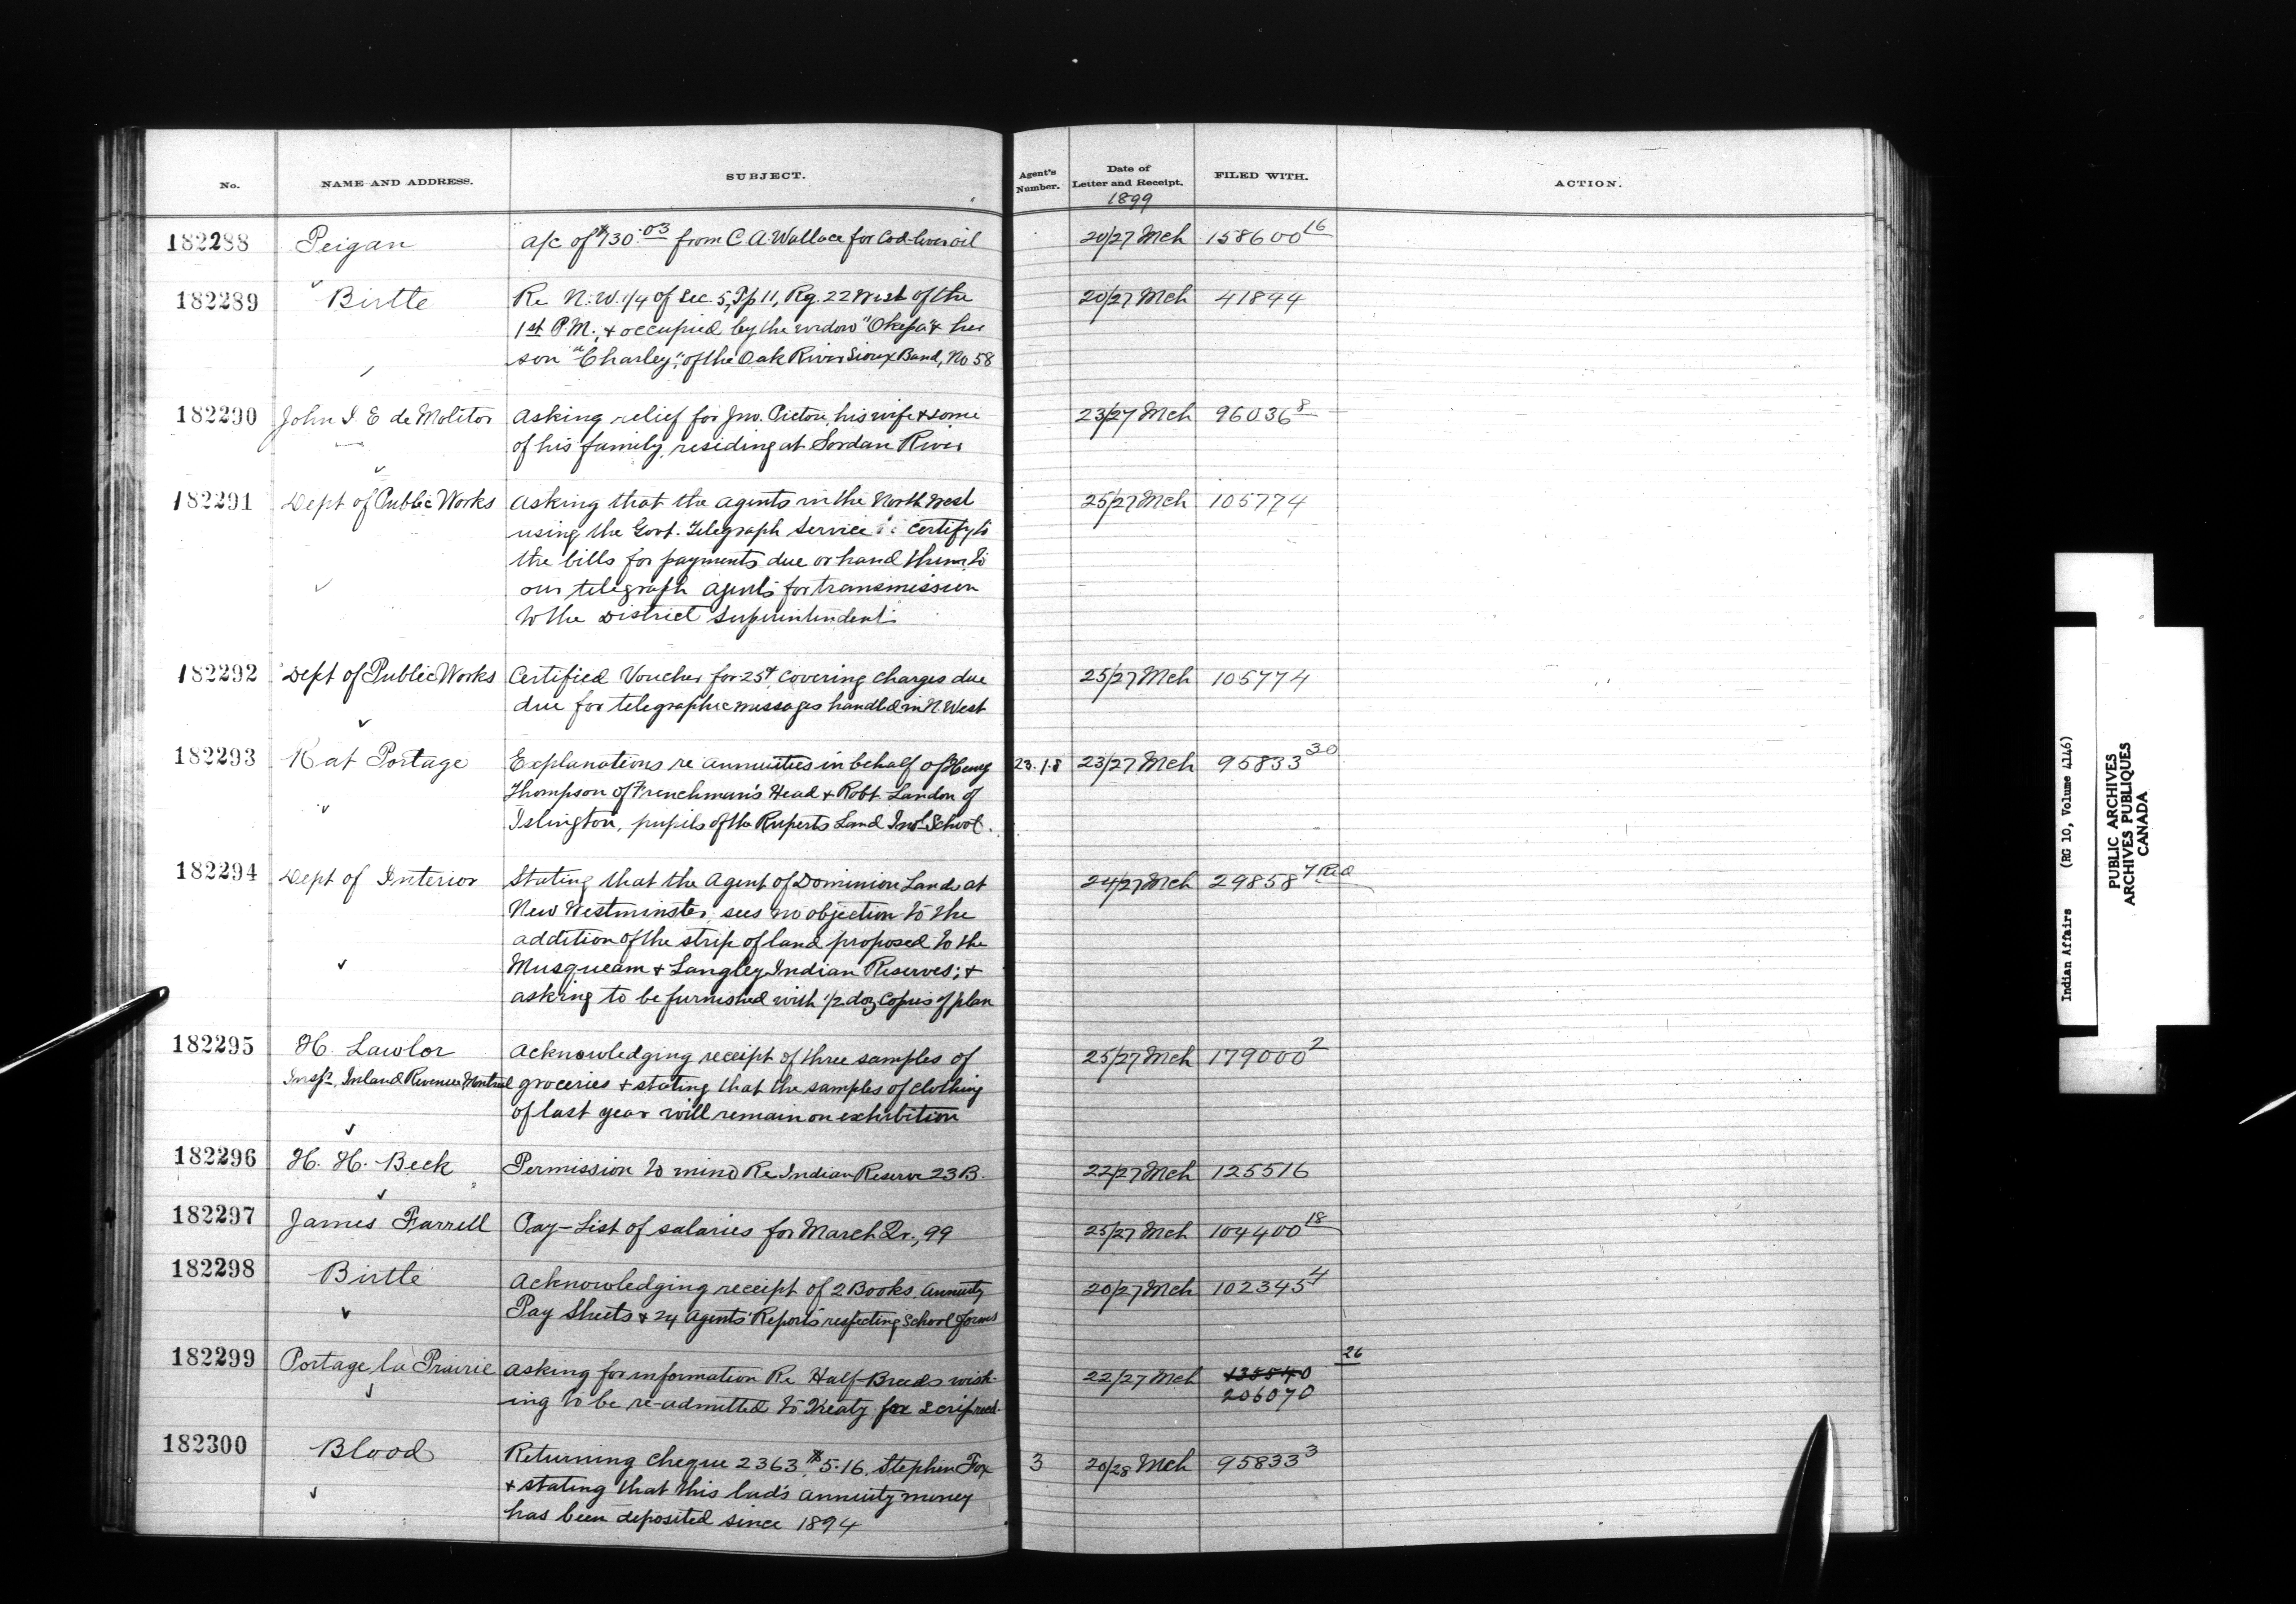 No. NAME AND ADDRESS. SUBJECT. Agent's Number. Date of Letter and Receipt. 1899 FILED WITH. ACTION.
182288 Peigan a/c of $130.03 from C. A. Wallace for Cod-liver oil 20/27 Mch 158600 16
182289 Birtle Re N.W. 1/4 of Sec. 5, Tp 11, Rg. 22 West of the 20/27 Mch 41844
1st P.M., & occupied by the widow "Okepa" & her
son "Charley," of the Oak River Sioux Band, No 58
182290 John I. E de Molitor Asking relief for Jno. Picton, his wife & some 23/27 Mch 96036 8
of his family, residing at Jordan River
182291 Dept of Public Works Asking that the agents in the North West 25/27 Mch 105774
using the Govt. Telegraph Service certify to
the bills for payments due or hand them to
our telegraph agents for transmission
to the District Superintendent.
182292 Dept of Public Works Certified Voucher for 25¢ covering charges due 25/27 Mch 105774
due for telegraphic messages handled in N. West
182293 Rat Portage Explanations re annuities in behalf of Henry 23.1.8 23/27 Mch 95833 30
Thompson of Frenchman's Head & Robt Landon of
Islington, pupils of the Ruperts Land Indl School.
182294 Dept of Interior Stating that the Agent of Dominion Lands at 24/27 Mch 29858 7
New Westminster, sees no objection to the
addition of the strip of land proposed to the
Musqueam & Langley Indian Reserves; &
asking to be furnished with 1/2 doz copies of plan
182295 H. Lawlor Acknowledging receipt of three samples of 25/27 Mch 179000 2
Inspr. Inland Revenue Montreal groceries & stating that the samples of clothing
of last year will remain on exhibition
182296 H. H. Beck Permission to mind Re Indian Reserve 23 B. 22/27 Mch 125516
182297 James Farrell Pay-List of salaries for March Qr., 99 25/27 Mch 104400 18
182298 Birtle Acknowledging receipt of 2 Books Annuity 20/27 Mch 102345 4
Pay Sheets & 24 Agents' Reports respecting School forms
182299 Portage la Prairie Asking for information Re Half-Breeds wish- 22/27 Mch 135540 26
ing to be re-admitted to Treaty for Scrip recd. 206070
182300 Blood Returning cheque 2363, $5.16, Stephen Fox 3 20/28 Mch 95833 3
& stating that this lad's annuity money
has been deposited since 1894
Indian Affairs (RG 10, Volume 4146)
PUBLIC ARCHIVES
ARCHIVES PUBLIQUES
CANADA